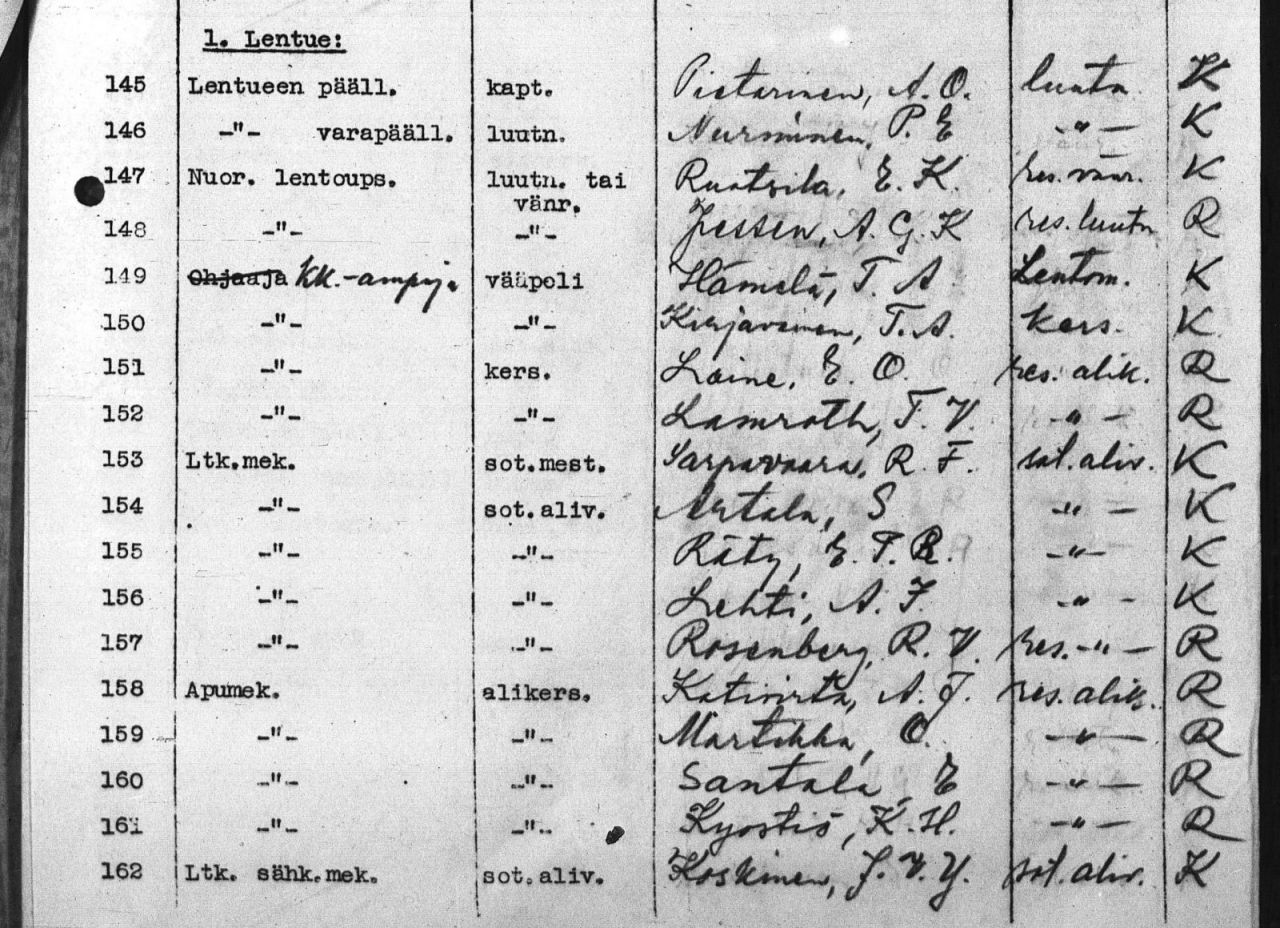 1. Lentue:
145 Lentueen pääll. kapt. Pietarinen, A. O. luutn. K
146 -"- varapääll. luutn. Nurminen, P. E -"- K
147 Nuor. lentoups. luutn. tai vänr. Ruotsila, E. K. res. vänr. K
148 -"- -"- Jessen, A. G. K res. luutn R
149 Ohjaaja KK.-ampuja vääpeli Hämelä, T. A Lentom. K
150 -"- -"- Kirjavainen, T. A. kers. K
151 -"- kers. Laine, E. O. res. alik. R
152 -"- -"- Lamroth, T. V. -"- R
153 Ltk.mek. sot.mest. Sarpavaara, R. F. sot. aliv. K
154 -"- sot.aliv. Artala, S -"- K
155 -"- -"- Räty, E. T. R. -"- K
156 -"- -"- Lehti, A. J. -"- K
157 -"- -"- Rosenberg, R. V. res. -"- R
158 Apumek. alikers. Kativirta, A. J. res. alik. R
159 -"- -"- Martikka, O. -"- R
160 -"- -"- Santala, E -"- R
161 -"- -"- Kyöstiö, K. H. -"- R
162 Ltk. sähk.mek. sot.aliv. Koskinen, J. V. Y. sot. aliv. K